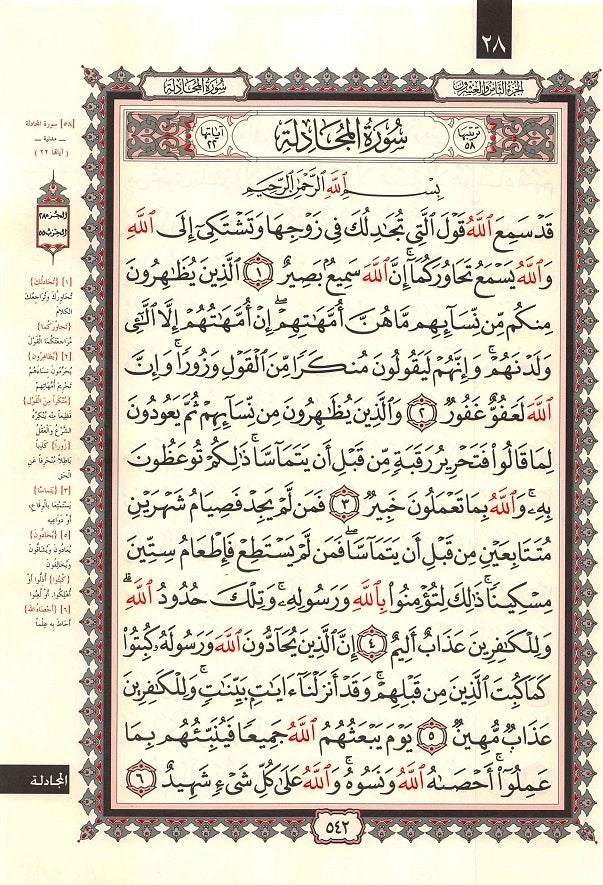 ٢٨
الجزء الثامن والعشرون
سورة المجادلة
ترتيبها ٥٨
سُورَةُ المُجَادِلَةِ
آياتها ٢٢
بِسْمِ ٱللَّهِ ٱلرَّحْمَٰنِ ٱلرَّحِيمِ
قَدْ سَمِعَ ٱللَّهُ قَوْلَ ٱلَّتِي تُجَٰدِلُكَ فِي زَوْجِهَا وَتَشْتَكِيٓ إِلَى ٱللَّهِ
وَٱللَّهُ يَسْمَعُ تَحَاوُرَكُمَآ إِنَّ ٱللَّهَ سَمِيعٌۢ بَصِيرٌ ١ ٱلَّذِينَ يُظَٰهِرُونَ
مِنكُم مِّن نِّسَآئِهِم مَّا هُنَّ أُمَّهَٰتِهِمْ ۖ إِنْ أُمَّهَٰتُهُمْ إِلَّا ٱلَّٰٓـِٔي
وَلَدْنَهُمْ ۚ وَإِنَّهُمْ لَيَقُولُونَ مُنكَرًا مِّنَ ٱلْقَوْلِ وَزُورًا ۚ وَإِنَّ
ٱللَّهَ لَعَفُوٌّ غَفُورٌ ٢ وَٱلَّذِينَ يُظَٰهِرُونَ مِن نِّسَآئِهِمْ ثُمَّ يَعُودُونَ
لِمَا قَالُوا۟ فَتَحْرِيرُ رَقَبَةٍ مِّن قَبْلِ أَن يَتَمَآسَّا ۚ ذَٰلِكُمْ تُوعَظُونَ
بِهِۦ ۚ وَٱللَّهُ بِمَا تَعْمَلُونَ خَبِيرٌ ٣ فَمَن لَّمْ يَجِدْ فَصِيَامُ شَهْرَيْنِ
مُتَتَابِعَيْنِ مِن قَبْلِ أَن يَتَمَآسَّا ۖ فَمَن لَّمْ يَسْتَطِعْ فَإِطْعَامُ سِتِّينَ
مِسْكِينًا ۚ ذَٰلِكَ لِتُؤْمِنُوا۟ بِٱللَّهِ وَرَسُولِهِۦ ۚ وَتِلْكَ حُدُودُ ٱللَّهِ ۗ
وَلِلْكَٰفِرِينَ عَذَابٌ أَلِيمٌ ٤ إِنَّ ٱلَّذِينَ يُحَآدُّونَ ٱللَّهَ وَرَسُولَهُۥ كُبِتُوا۟
كَمَا كُبِتَ ٱلَّذِينَ مِن قَبْلِهِمْ ۚ وَقَدْ أَنزَلْنَآ ءَايَٰتٍۭ بَيِّنَٰتٍ ۚ وَلِلْكَٰفِرِينَ
عَذَابٌ مُّهِينٌ ٥ يَوْمَ يَبْعَثُهُمُ ٱللَّهُ جَمِيعًا فَيُنَبِّئُهُم بِمَا
عَمِلُوٓا۟ ۚ أَحْصَىٰهُ ٱللَّهُ وَنَسُوهُ ۚ وَٱللَّهُ عَلَىٰ كُلِّ شَىْءٍ شَهِيدٌ ٦
٥٤٢
[٥٨] سورة المجادلة
ــ مدنية ــ
( آياتها ٢٢ )
الجزء ٢٨
الحزب ٥٥
[١] {تُجَادِلُكَ}
تُحَاوِرُكَ وَتُرَاجِعُكَ
الكَلَامَ
{تَحَاوُرَكُمَا}
مُرَاجَعَتَكُمَا القَوْلَ
[٢] {يُظَاهِرُونَ}
يُحَرِّمُونَ نِسَاءَهُمْ
تَحْرِيمَ أُمَّهَاتِهِمْ
{مُنْكَراً مِنَ القَوْلِ}
فَظِيعاً مِنْهُ يُنْكِرُهُ
الشَّرْعُ وَالعَقْلُ
{زُوراً} كَذِباً
بَاطِلاً مُنْحَرِفاً عَنِ
الحَقِّ
[٣] {يَتَمَاسَّا}
يَسْتَمْتِعَا بِالْوِقَاعِ،
أَوْ دَوَاعِيهِ
[٥] {يُحَادُّونَ}
يُعَادُونَ وَيُشَاقُّونَ
وَيُخَالِفُونَ
{كُبِتُوا} أُذِلُّوا أَوْ
أُهْلِكُوا. أَوْ لُعِنُوا
[٦] {أَحْصَاهُ اللهُ}
أَحَاطَ بِهِ عِلْماً
المجادلة